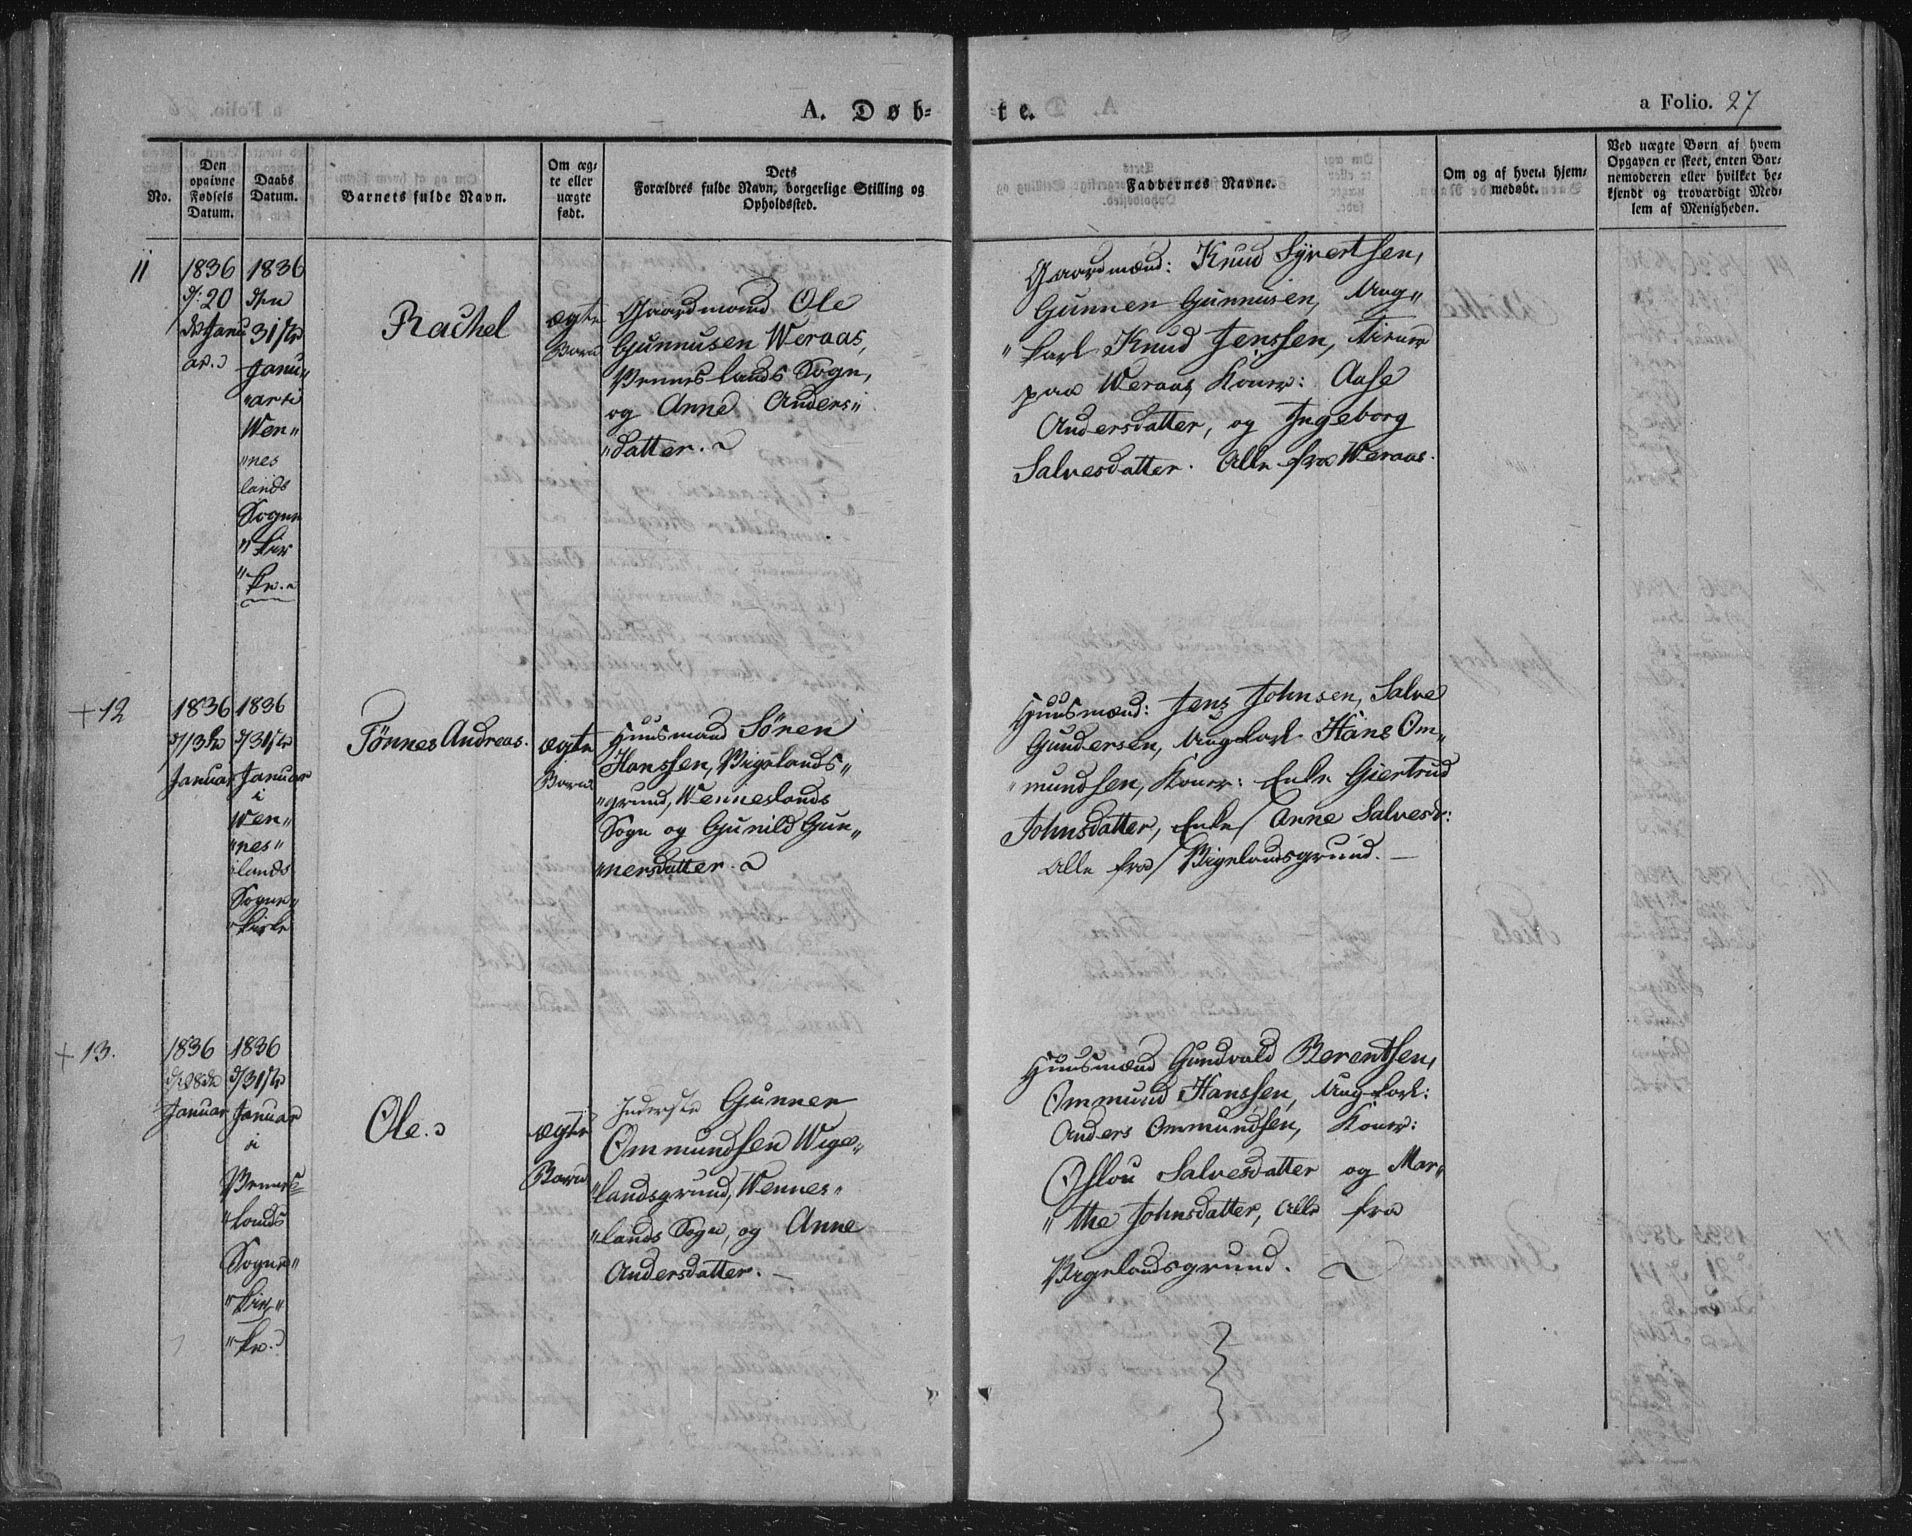 A. Døb-
te.
a Folio. 27
No.
Den opgivne Fødsels Datum.
Daabs Datum.
Barnets fulde Navn.
Om æg-
te eller
uægte
født.
Dets
Forældres fulde Navn, borgerlige Stilling og
Opholdssted.
Faddernes Navne.
Om og af hvem hjem-
medøbt.
Ved uægte Børn af hvem
Opgaven er skeet, enten Bar-
nemoderen eller hvilket be-
kjendt og troværdigt Med-
lem af Menigheden.
11
1836
d: 20
Janu
ar.
1836
den
31/te
Janu„
„ar i
Wen„
„nes
lands
Sogne
„kir
„ke.
Rachel
ægte
Barn
Gaardmand Ole
Gunnusen Weraas,
Vennes lands Sogn,
og Anne Anders„
„datter.
Gaardmænd: Knud Syvertsen,
Gunnen Gunnusen, Ung„
„karl Knud Jenssen,
paa Weraas, Koner: Aase
Andersdatter, og Ingeborg
Salvesdatter. Alle fra Weraas.
+ 12
1836
d/13de
Januar
1836
d/31/te
Januar
i
Wen„
„nes„
lands
Sogne„
„kirke
Tönnes Andreas.
ægte
Barn
Huusmand Sören
Hanssen, Vigelands„
„grund, Wenneslands
Sogn og Gunild Gun„
„nersdatter.
Huusmænd: Jens Johnsen, Salve
Gundersen, Ungkarl Hans Om„
„mundsen, Koner: Enke Giertrud
Johnsdatter, Enke Anne Salvesd:
Alle fra Vigelandsgrund. —
+ 13.
1836
d/28de
Januar
1836
d/31/te
Januar
i
Vennes
„lands
Sogne„
„kir„
„ke.
Ole.
ægte
Barn
Inderste Gunner
Ommundsen Wige„
„landsgrund, Wennes„
„lands Sogn, og Anne
Andersdatter. —
Huusmænd Gundvald Berentsen,
Ommund Hanssen, Ungkarl:
Anders Ommundsen, Koner:
Oslou Salvesdatter og Mar„
„the Johnsdatter, Alle fra
Vigelandsgrund.